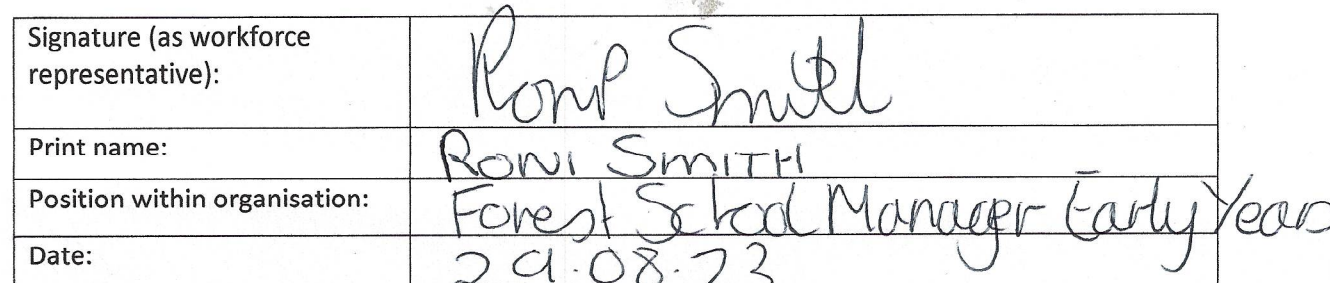 Signature (as workforce representative): Roni Smith
Print name: RONI SMITH
Position within organisation: Forest School Manager Early Years
Date: 29.08.23